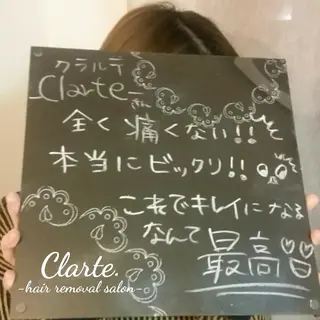 クラルテ
Clarteさん
全く痛くない!!
本当にビックリ!!
これでキレイになる
なんて最高
Clarte.
-hair removal salon-